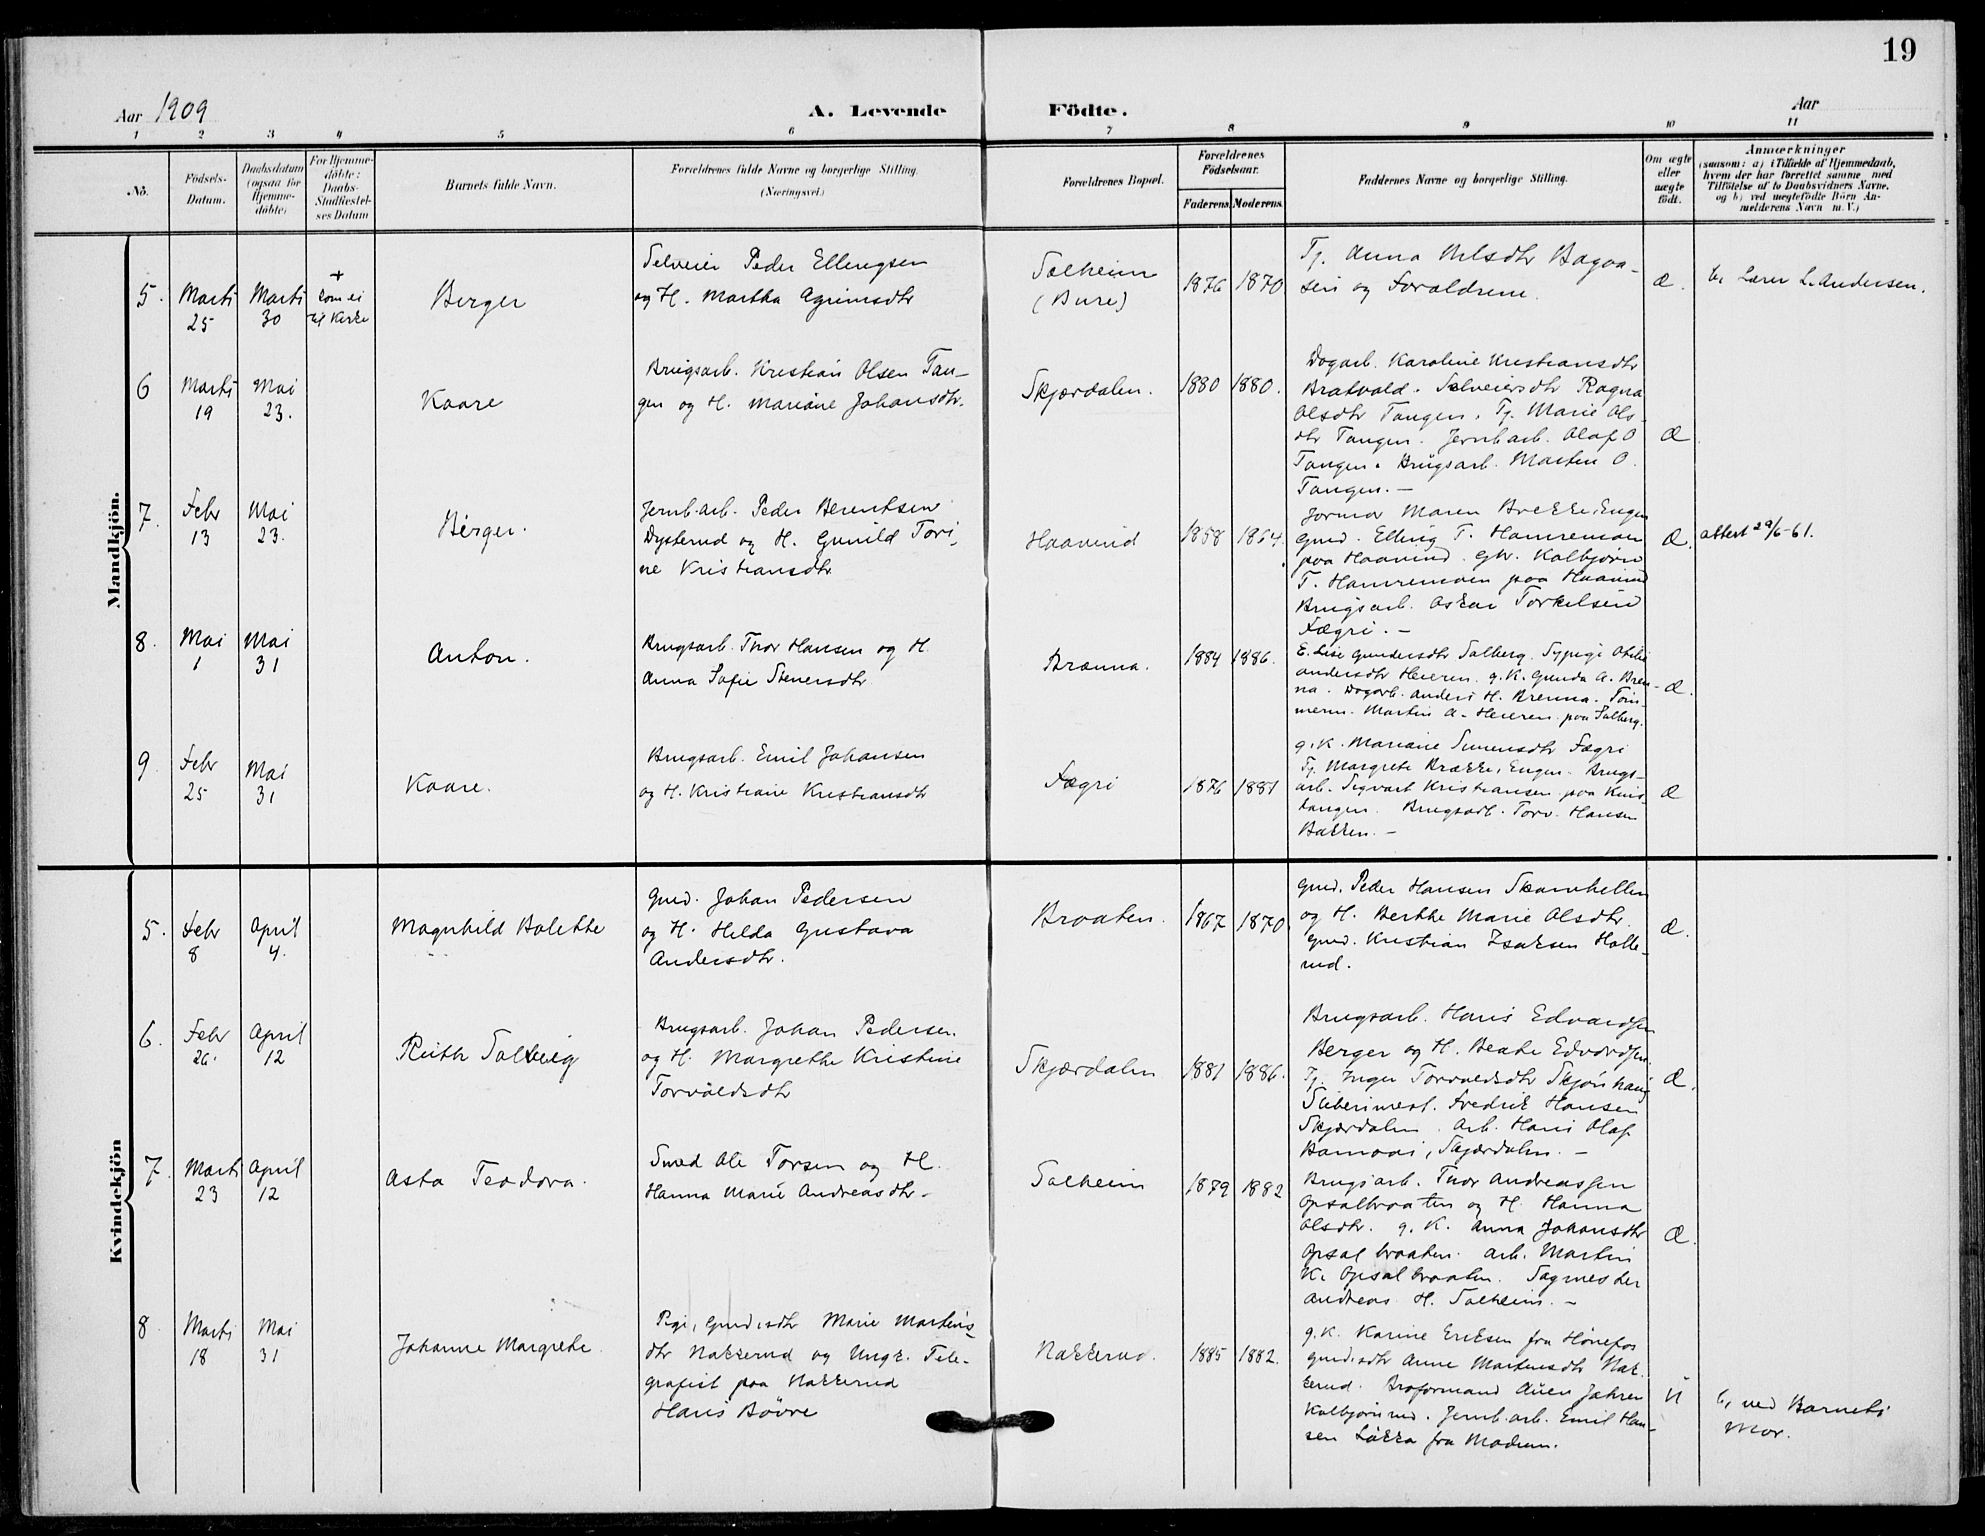 19
Aar 1909
A. Levende Födte.
Aar
1 2 3 4 5 6 7 8 9 10 11
No.
Födsels-Datum.
Daabsdatum (ogsaa for Hjemme-döbte)
For Hjemme-döbte: Daabs-Stadfæstel-ses Datum
Barnets fulde Navn.
Forældrenes fulde Navne og borgerlige Stilling. (Næringsvei.)
Forældrenes Bopæl.
Forældrenes Födselsaar.
Faderens. Moderens.
Faddernes Navne og borgerlige Stilling.
Om ægte eller uægte födt.
Anmærkninger
(saasom: a) i Tilfælde af Hjemmedaab,
hvem der har forrettet samme med
Tilföielse af to Daabsvidners Navne,
og b) ved uægtefödte Börn An-
melderens Navn m. V.)
Mandkjön.
5. Marts 25
Marts 30
+ kom ei til Kirke
Berger
Selveier Peder Ellingsen
og H. Martha Agrimsdtr
Solheim
(Bure)
1876 1870
Tj. Anna Nilsdtr Bagaa-
sen og Forældrene.
Æ.
Lærer L. Andersen.
6 Marts 19
Mai 23.
Kaare
Brugsarb. Kristian Olsen Tan-
gen og H. Mariane Johansdtr.
Skjærdalen.
1880 1880.
Dagarb. Karoline Kristiansdtr
Bratvald. Selveiersdtr Ragna
Olsdtr Tangen. Tj. Marie Ols-
dtr Tangen. Jernb.arb. Olaf O
Tangen. Brugsarb. Martin O.
Tangen. —
Æ
7. Febr 13
Mai 23.
Birger.
Jernb.arb. Peder Berentsen
Dysterud og H. Gunild Tori-
ne Kristiansdtr
Haavind
1858 1864.
Jormor Maren Brekke, Engen
Gmd. Elling T. Hamremoen
paa Haavind. Gbr. Kolbjørn
T. Hamremoen paa Haavind
Brugsarb. Oskar Torkelsen
Fægri. —
Æ.
attest 29/6-61.
8. Mai 1
Mai 31
Anton.
Brugsarb. Thor Hansen og H.
Anna Sofie Stenersdtr
Brænna.
1884 1886.
E. Lise Gundersdtr Solberg. Sypige Otilie
Andersdtr Heieren. g.K. Gunda A. Bren-
na. Dagarb. Anders H. Brenna. Töm-
merm. Martin A. Heieren paa Solberg.
Æ.
9. Febr 25
Mai 31
Kaare.
Brugsarb. Emil Johansen
og H. Kristiane Kristiansdtr
Fægri
1876 1881
g.K. Mariane Simensdtr Fægri
Tj. Margrete Brække, Engen. Brugs-
arb. Sigvart Kristiansen paa Knis-
tangen. Brugsarb. Torv. Hansen
Bakken. —
Æ
Kvindekjön
5. Febr 8
April 4.
Magnhild Bolette
Gmd. Johan Pedersen
og H. Hilda Gustava
Andersdtr.
Braaten.
1867 1870
Gmd. Peder Hansen Skamhellen
og H. Berthe Marie Olsdtr.
Gmd. Kristian Isaksen Holle-
rud.
Æ.
6. Febr 26.
April 12
Ruth Solveig
Brugsarb. Johan Pedersen.
og H. Margrethe Kristine
Torvaldsdtr
Skjærdalen
1881 1886.
Brugsarb. Hans Edvardsen
Berger og H. Beate Edvardsen.
Tj. Inger Torvaldsdtr Skjønhaug
Sliberimest. Fredrik Hansen
Skjærdalen. Arb. Hans Olaf
Skjærdalen. —
Æ.
7. Marts 23
April 12
Asta Teodora.
Smed Ole Torsen og H.
Hanna Marie Andreasdtr.
Solheim
1879 1882
Brugsarb. Thor Andreassen
Opsalbraaten og H. Hanna
Olsdtr. g.K. Anna Johansdtr
Opsalbraaten. Arb. Martin
K. Opsalbraaten. Sagmester
Andreas H. Solheim. —
Æ.
8 Marts 18
Mai 31
Johanne Margrete.
Pige, Gmd.sdtr Marie Martins-
dtr Nakkerud og Ungk. Tele-
grafist paa Nakkerud
Hans Bövre
Nakkerud.
1885 1882.
g.K. Karine Eriksen fra Hönefos
Gmd.sdtr Anne Martinsdtr Nak-
kerud. Broformand Auen Jahren
Kolbjörnrud. Jernb.arb. Emil Han-
sen Løkka fra Modum.
U
ved Barnets
Mor.